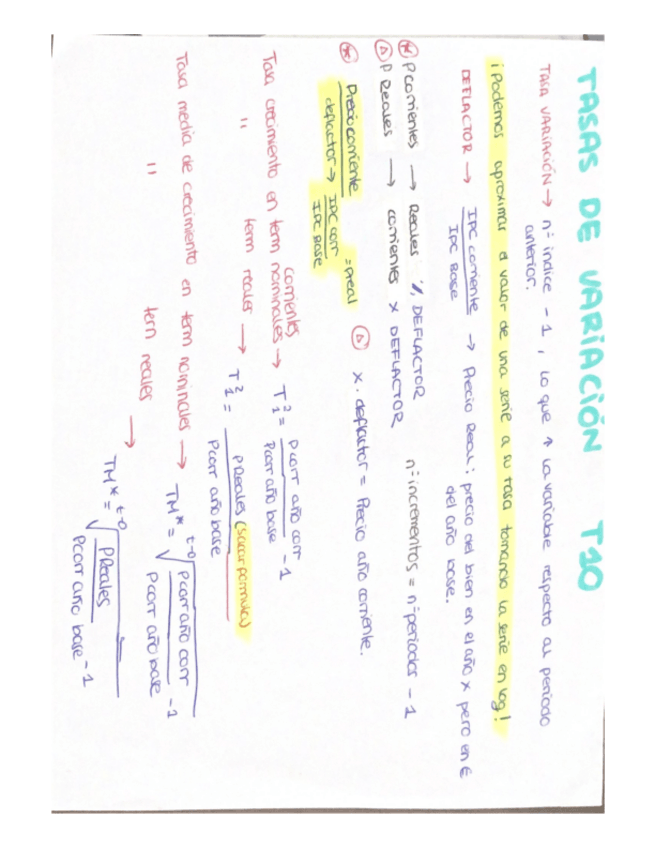 TASAS DE VARIACIÓN T10
TASA VARIACIÓN → nº índice - 1, lo que ↑ la variable respecto al periodo
anterior.
¡Podemos aproximar el valor de una serie a su tasa tomando la serie en log!
DEFLACTOR → IPC corriente / IPC Base → Precio Real: precio del bien en el año x pero en €
del año base.
* P corrientes → Reales % DEFLACTOR
△ P Reales → corrientes x DEFLACTOR
nº incrementos = nº periodos - 1
* Precio corriente / deflactor → IPC corr / IPC Base = preal △ x. deflactor = Precio año corriente.
Tasa crecimiento en term nominales corrientes → T²₁ = Pcorr año corr / Pcorr año base - 1
" term reales → T²₁ = PReales (sacar formula) / Pcorr año base
Tasa media de crecimiento en term nominales → TM* = t-0√ Pcorr año corr / Pcorr año base - 1
" term reales → TM* = t-0√ PReales / Pcorr año base - 1